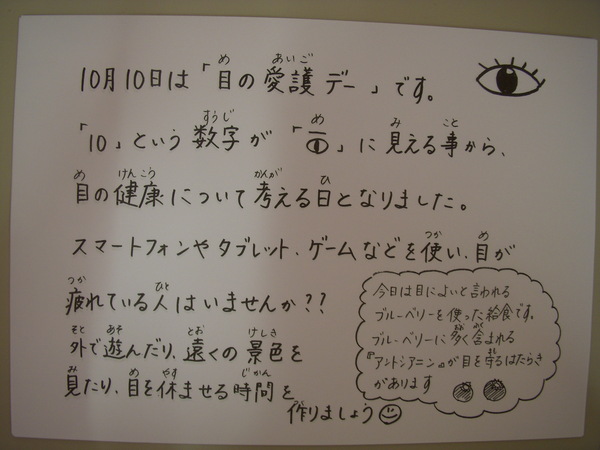 10月10日は「目の愛護デー」です。
「10」という数字が「　」に見える事から、
目の健康について考える日となりました。
スマートフォンやタブレット、ゲームなどを使い、目が
疲れている人はいませんか??
外で遊んだり、遠くの景色を
見たり、目を休ませる時間を
作りましょう
今日は目によいと言われる
ブルーベリーを使った給食です。
ブルーベリーに多く含まれる
『アントシアニン』が目を守るはたらき
があります